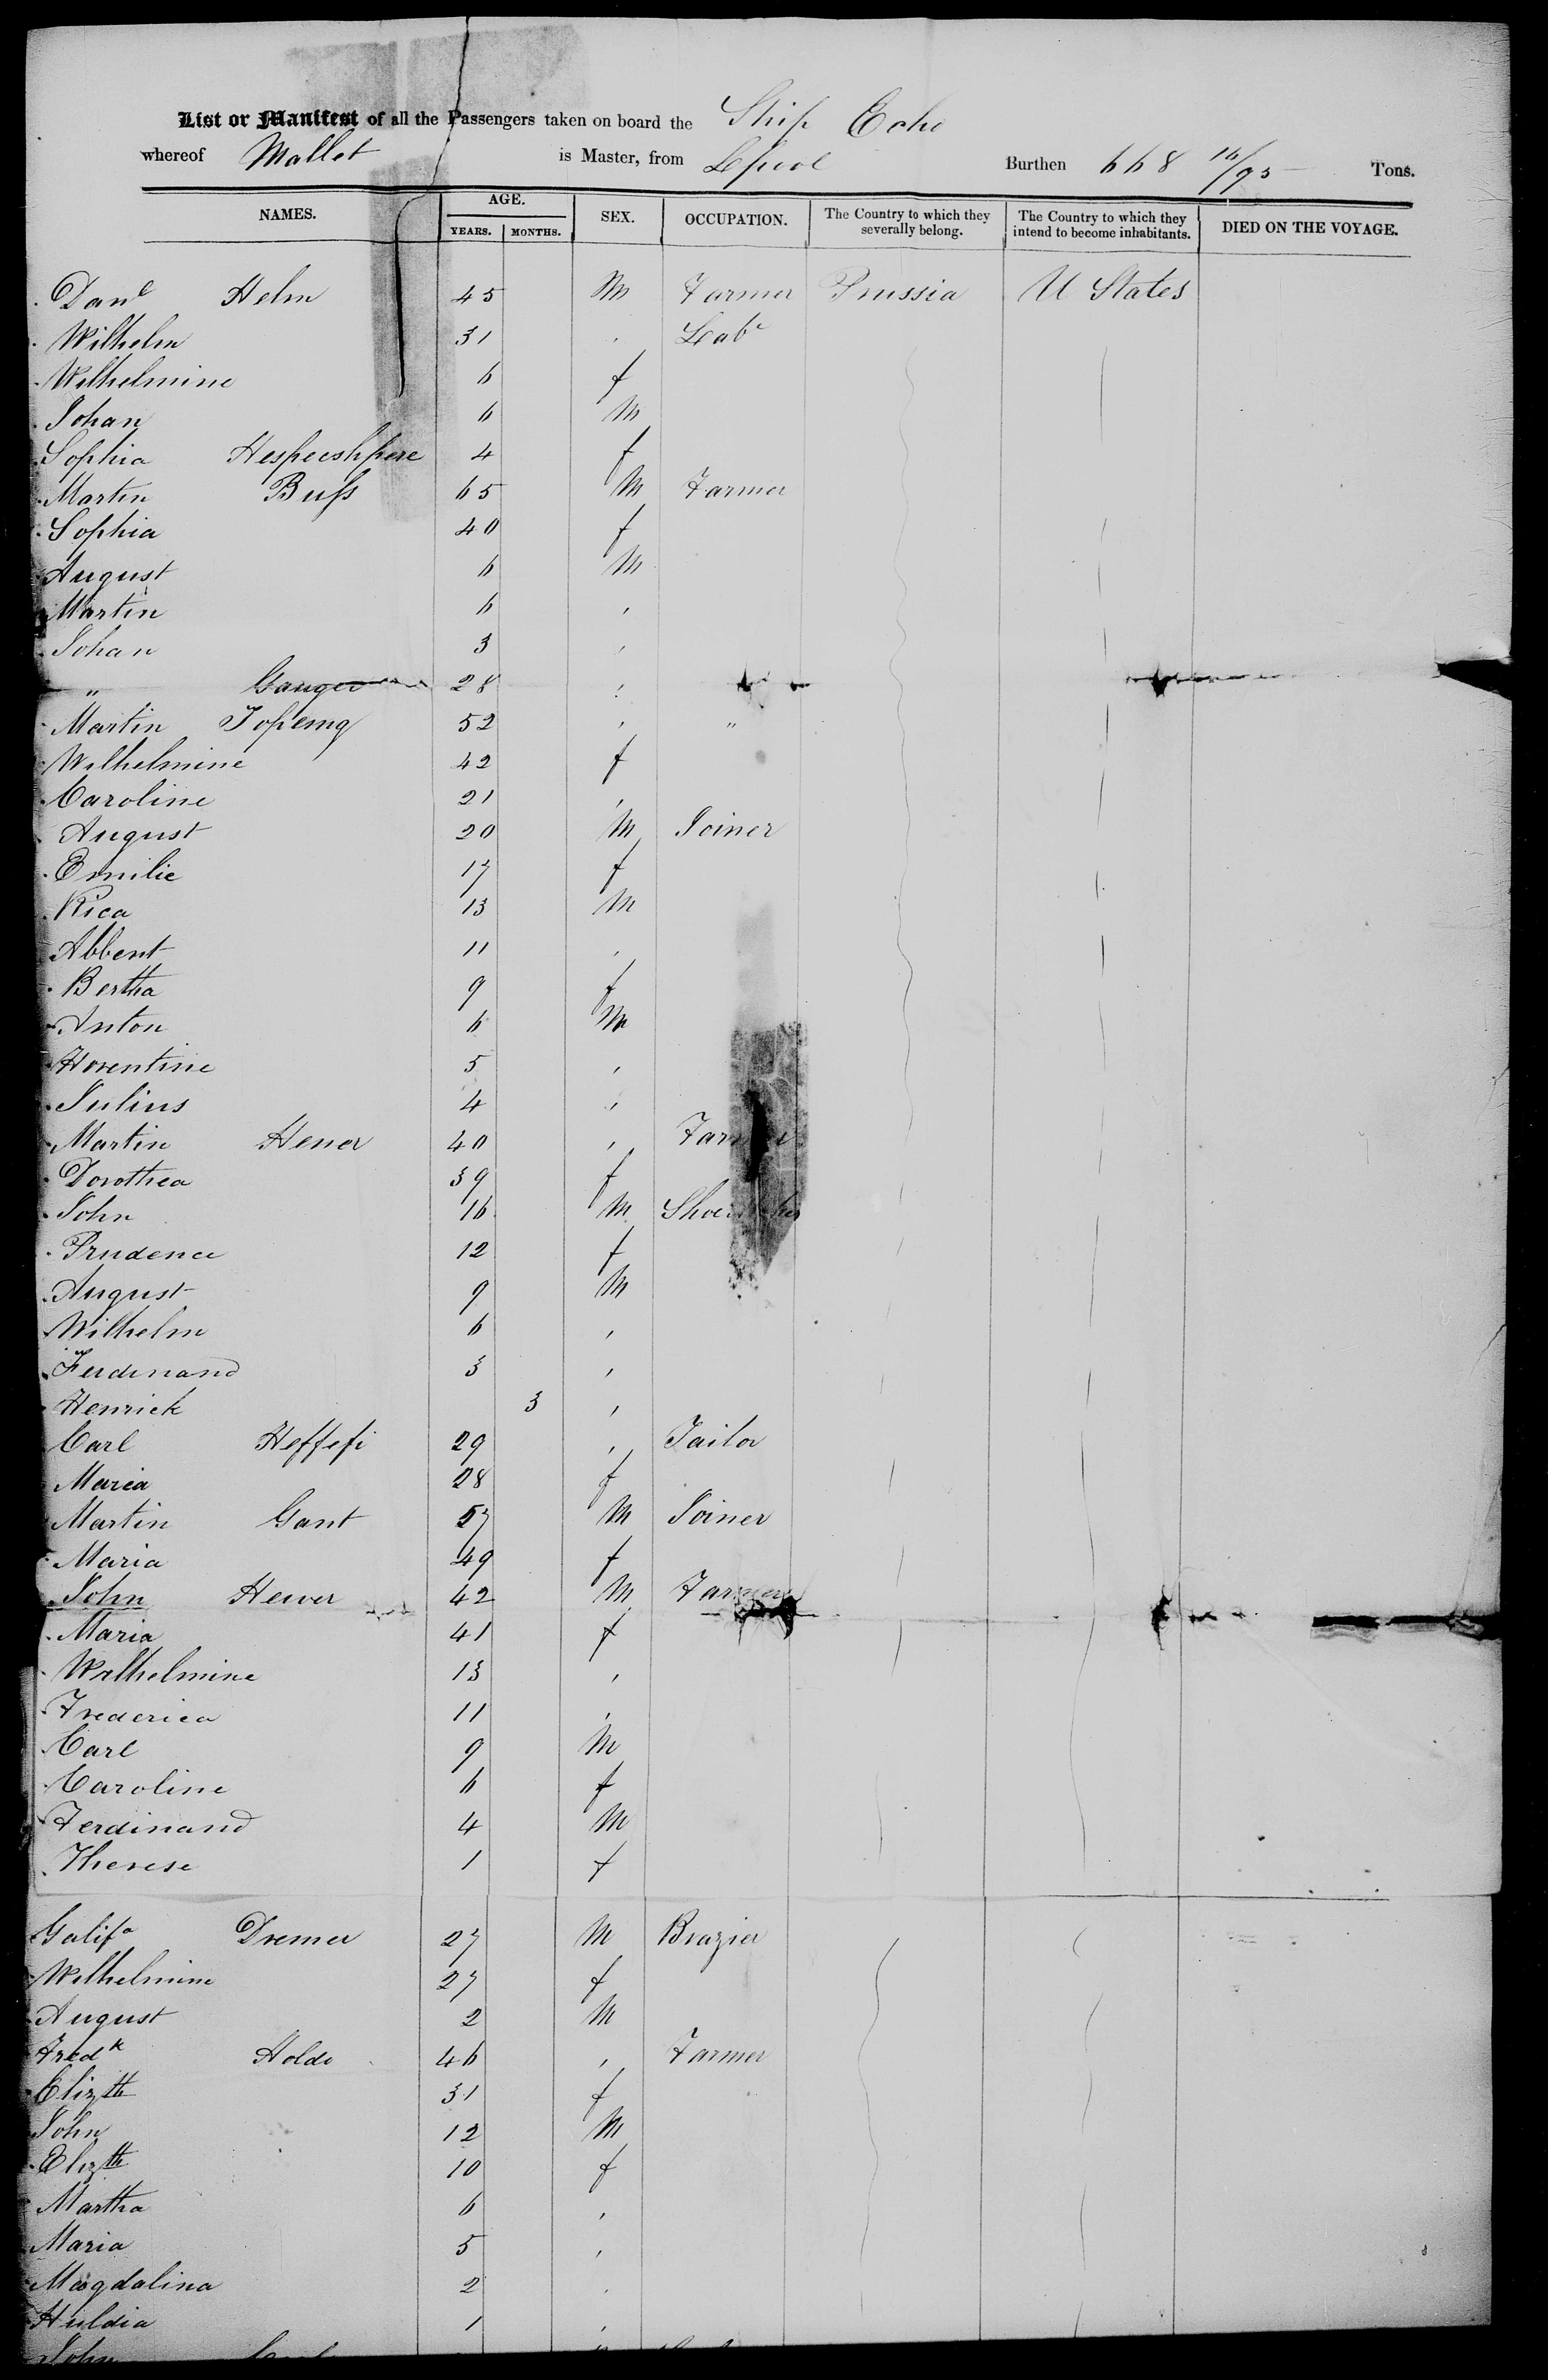 List or Manifest of all the Passengers taken on board the Ship Echo
whereof Mallet is Master, from Lpool Burthen 668 16/95 Tons.
NAMES. AGE. YEARS. MONTHS. SEX. OCCUPATION. The Country to which they severally belong. The Country to which they intend to become inhabitants. DIED ON THE VOYAGE.
Danl Helm 45 M Farmer Prussia U States
Wilhelm 31 Labr
Wilhelmine 6 f
Johan 6 M
Sophia 4 f
Martin Buss 65 M Farmer
Sophia 40 f
August 6 M
Martin 6 ,
Johan 3 ,
" Ganger 28 ,
Martin 52 , "
Wilhelmine 42 f
Caroline 21 ,
August 20 M Joiner
Emilie 17 f
Rica 13 M
Abbent 11 ,
Bertha 9 f
Anton 6 M
Florentine 5 ,
Julius 4 ,
Martin Hener 40 , Farmer
Dorothea 39 f
John 16 M Shoemaker
Prudence 12 f
August 9 M
Wilhelm 6 ,
Ferdinand 3 ,
Henrick 3 ,
Carl 29 , Tailor
Maria 28 f
Martin Gant 57 M Joiner
Maria 49 f
John Hewer 42 M Farmer
Maria 41 f
Wilhelmine 13 ,
Frederica 11 ,
Carl 9 M
Caroline 6 f
Ferdinand 4 M
Therese 1 f
Dremer 27 M Brazier
Wilhelmine 27 f
August 2 M
Fredk Holdo 46 , Farmer
Elizth 31 f
John 12 M
Elizth 10 f
Martha 6 ,
Maria 5 ,
Magdalina 2 ,
Huldia 1 ,
John